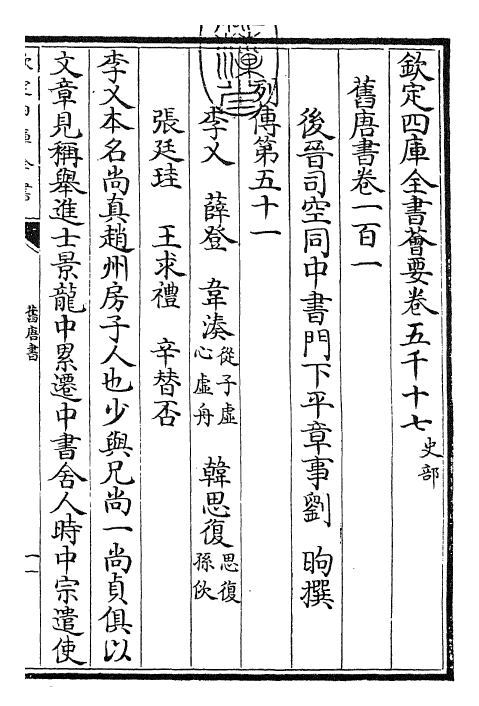 欽定四庫全書薈要卷五千十七 史部
舊唐書卷一百一
後晉司空同中書門下平章事劉 昫撰
列傳第五十一
李乂 薛登 韋湊 從子虛心虛舟 韓思復 思復孫佽
張廷珪 王求禮 辛替否
李乂本名尚真趙州房子人也少與兄尚一尚貞俱以
文章見稱舉進士景龍中累遷中書舍人時中宗遣使
舊唐書